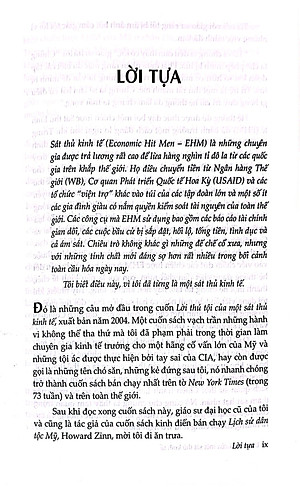 LỜI TỰA
Sát thủ kinh tế (Economic Hit Men – EHM) là những chuyên
gia được trả lương rất cao để lừa hàng nghìn tỉ đô la từ các quốc
gia trên khắp thế giới. Họ điều chuyển tiền từ Ngân hàng Thế
giới (WB), Cơ quan Phát triển Quốc tế Hoa Kỳ (USAID) và các
tổ chức "viện trợ" khác vào túi của các tập đoàn lớn và một số ít
các gia đình giàu có nắm quyền kiểm soát tài nguyên của toàn thế
giới. Các công cụ mà EHM sử dụng bao gồm các báo cáo tài chính
gian dối, các cuộc bầu cử bị sắp đặt, hối lộ, tống tiền, tình dục và
cả ám sát. Chiêu trò không khác gì những đế chế cổ xưa, nhưng
với những tính chất mới đáng sợ hơn rất nhiều trong bối cảnh
toàn cầu hóa ngày nay.
Tôi biết điều này, vì tôi đã từng là một sát thủ kinh tế.
Đó là những câu mở đầu trong cuốn Lời thú tội của một sát thủ
kinh tế, xuất bản năm 2004. Một cuốn sách vạch trần những hành
vi không thể tha thứ mà tôi đã phạm phải trong thời gian làm
chuyên gia kinh tế trưởng cho một hãng cố vấn lớn của Mỹ và
những tội ác được thực hiện bởi tay sai của CIA, hay còn được
gọi là những tên chó săn, những kẻ đứng sau tôi, nó nhanh chóng
trở thành cuốn sách bán chạy nhất trên tờ New York Times (trong
73 tuần) và trên toàn thế giới.
Sau khi đọc xong cuốn sách này, giáo sư đại học cũ của tôi
và cũng là tác giả của cuốn sách kinh điển bán chạy Lịch sử dân
tộc Mỹ, Howard Zinn, mời tôi đi ăn trưa.
Lời tựa | ix